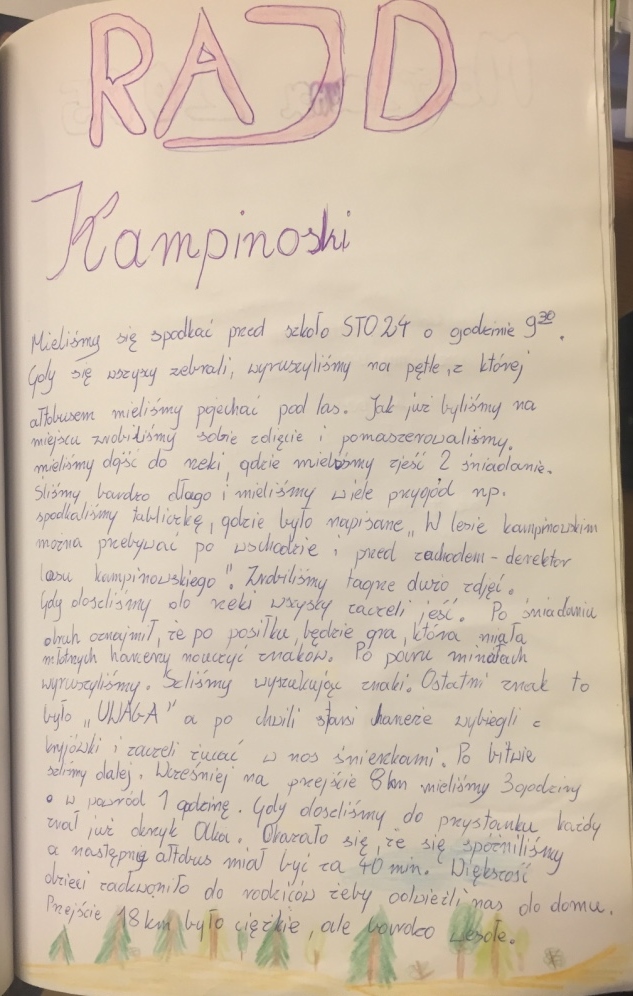 RAJD
Kampinoski
Mieliśmy się spodkać pred szkoło STO24 o godzinie 9³⁰.
Gdy się wszyszy zebrali, wyruszyliśmy na pętle, z której
ałtobusem mieliśmy pojechać pod las. Jak już byliśmy na
miejscu zrobiliśmy sobie zdięcie i pomaszerowaliśmy.
mieliśmy dojść do rzeki, gdzie mieliśmy zjeść 2 śniadanie.
Sliśmy bardzo dłago i mieliśmy wiele przygód np.
spodkaliśmy tabliczkę, gdzie było napisane „W lesie kampinowskim
można przebywać po wschodzie i pred zachodem - derektor
lasu kampinowskiego". Zrobiliśmy fagne dużo zdjęć.
Gdy doscliśmy do rzeki wszysky zaczeli jeść. Po śniadaniu
druh oznajmił, że po posiłku, będzie gra, która miała
młotnych harcerzy nauczyć znaków. Po paru minatach
wyruszyliśmy. Scliśmy wyszukując znaki. Ostatni znak to
było „UWAGA" a po chwili starsi harceże wybiegli z
kryjówki i zaczeli rzucać w nos śnieszkami. Po bitwie
scliśmy dalej. Wcześniej na prejście 8km mieliśmy 3godziny
a w powród 1 godzinę. Gdy doscliśmy do przystanku każdy
znał już okrzyk Olka. Okazało się, że się spóźniliśmy
a następnię ałtobus miał być za 40 min. Większość
dzieci zadwoniło do rodziców żeby odwieźli nas do domu.
Prejście 18km było ciężkie, ale bardzo wesołe.